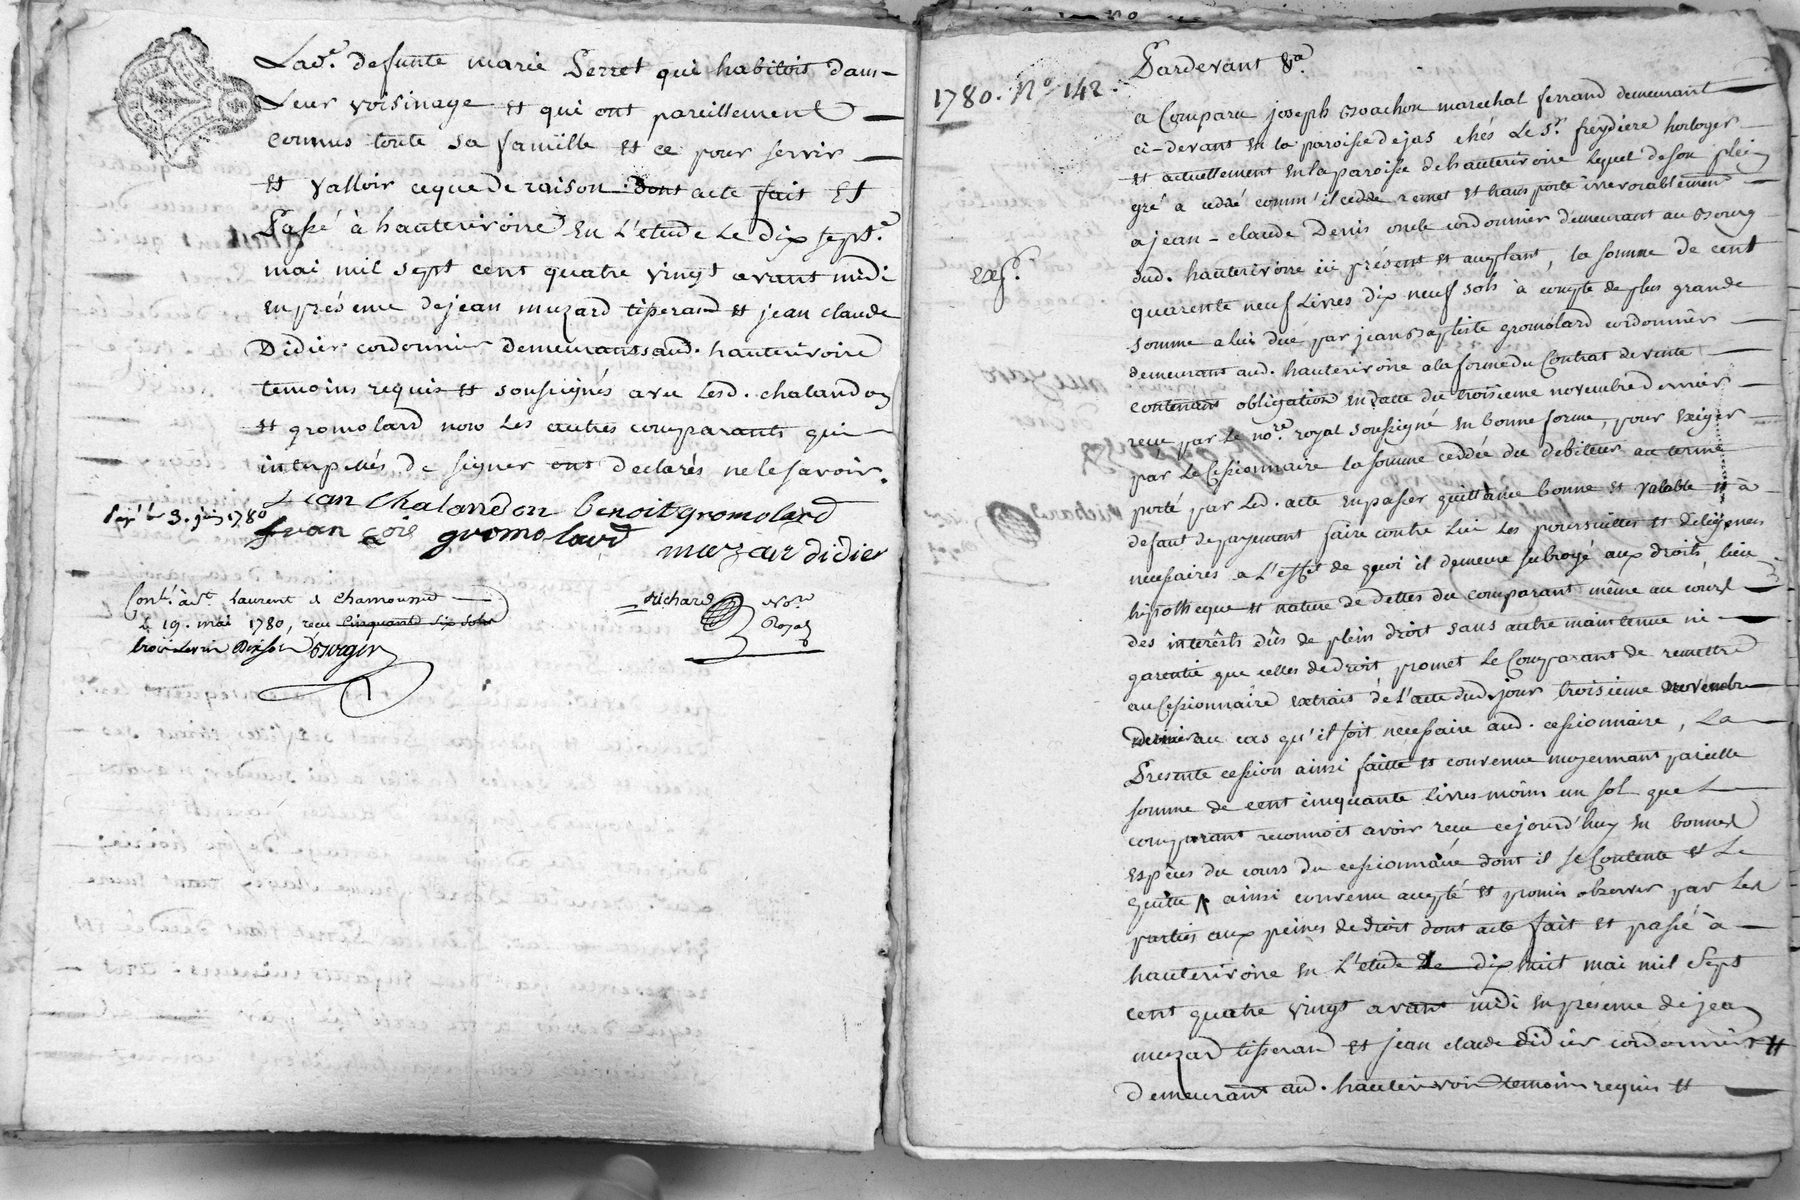 Lad.e defunte marie Perret qui habitoit dans
Leur voisinage et qui ont pareillement
connus toute sa famille et ce pour servir
et valloir ceque de raison. dont acte fait Et
Passé à hauterivoire En L'etude Le dix sept.e
mai mil sept cent quatre vingt avant midi
en présence de jean muzard tisserand et jean claude
Didier cordonnier demeurants aud. hauterivoire
temoins requis et soussignés avec Lesd. chalandon
et gromolard non Les autres comparants qui
interpellés de signer ont declarés ne le savoir.
jean chalandon benoit gromolard
Exp.é le 3. juin 1780
francois gromolard
muzar didier
Cont.é à S.t laurent de chamousset
le 19. mai 1780, recu cinquante six sols
trois Livres dix sols
Richard No.re
Royal
1780. No. 142.
Pardevant &a
a Comparu joseph marechal ferrand demeurant
ci-devant en la paroisse de jas chés Le Sr. freydiere horloger
et actuellement en la paroisse de hauterivoire Lequel de son plein
gré a ceddé comm'il cedde remet et transporte irrevocablement
a jean-claude Denis oncle cordonnier demeurant au Bourg
dud. hauterivoire ici présent et acceptant, la somme de cent
Exp.é
quarente neuf Livres dix neuf sols à compte de plus grande
somme a lui düe par jean Baptiste gromolard cordonnier
demeurant aud. hauterivoire a la forme du Contrat de vente
contenant obligation en datte du troisieme novembre dernier
recu par Le no.re royal soussigné en bonne forme, pour exiger
par Le Cessionnaire la somme ceddée du debiteur au terme
porté par Led. acte en passer quittance bonne et valable et à
defaut de payement faire contre lui les poursuittes et diligences
necessaires a L'effet de quoi il demeure subrogé aux droits lieu
hipotheque et nature de dettes du comparant même au cours
des interêts dûs de plein droit sans autre maintenue ni
garentie que celles de droit promet Le Comparant de remettre
au Cessionnaire extrais de L'acte dud. jour troisieme novembre
dernier au cas qu'il soit necessaire aud. cessionnaire, La
Presente cession ainsi faitte et convenue moyennant pareille
somme de cent cinquante livres moins un sol que Le
comparant reconnoit avoir recu cejourd'huy en bonnes
Espèces du cours du cessionnaire dont il se Contente et Le
quitte ainsi convenu accepté et promis observer par Les
parties aux peines de droit dont acte fait et passé à
hauterivoire en L'etude Le dix huit mai mil Sept
cent quatre vingt avant midi en présence de jean
muzard tisserand et jean claude didier cordonnier
demeurant aud. hauterivoire temoins requis et